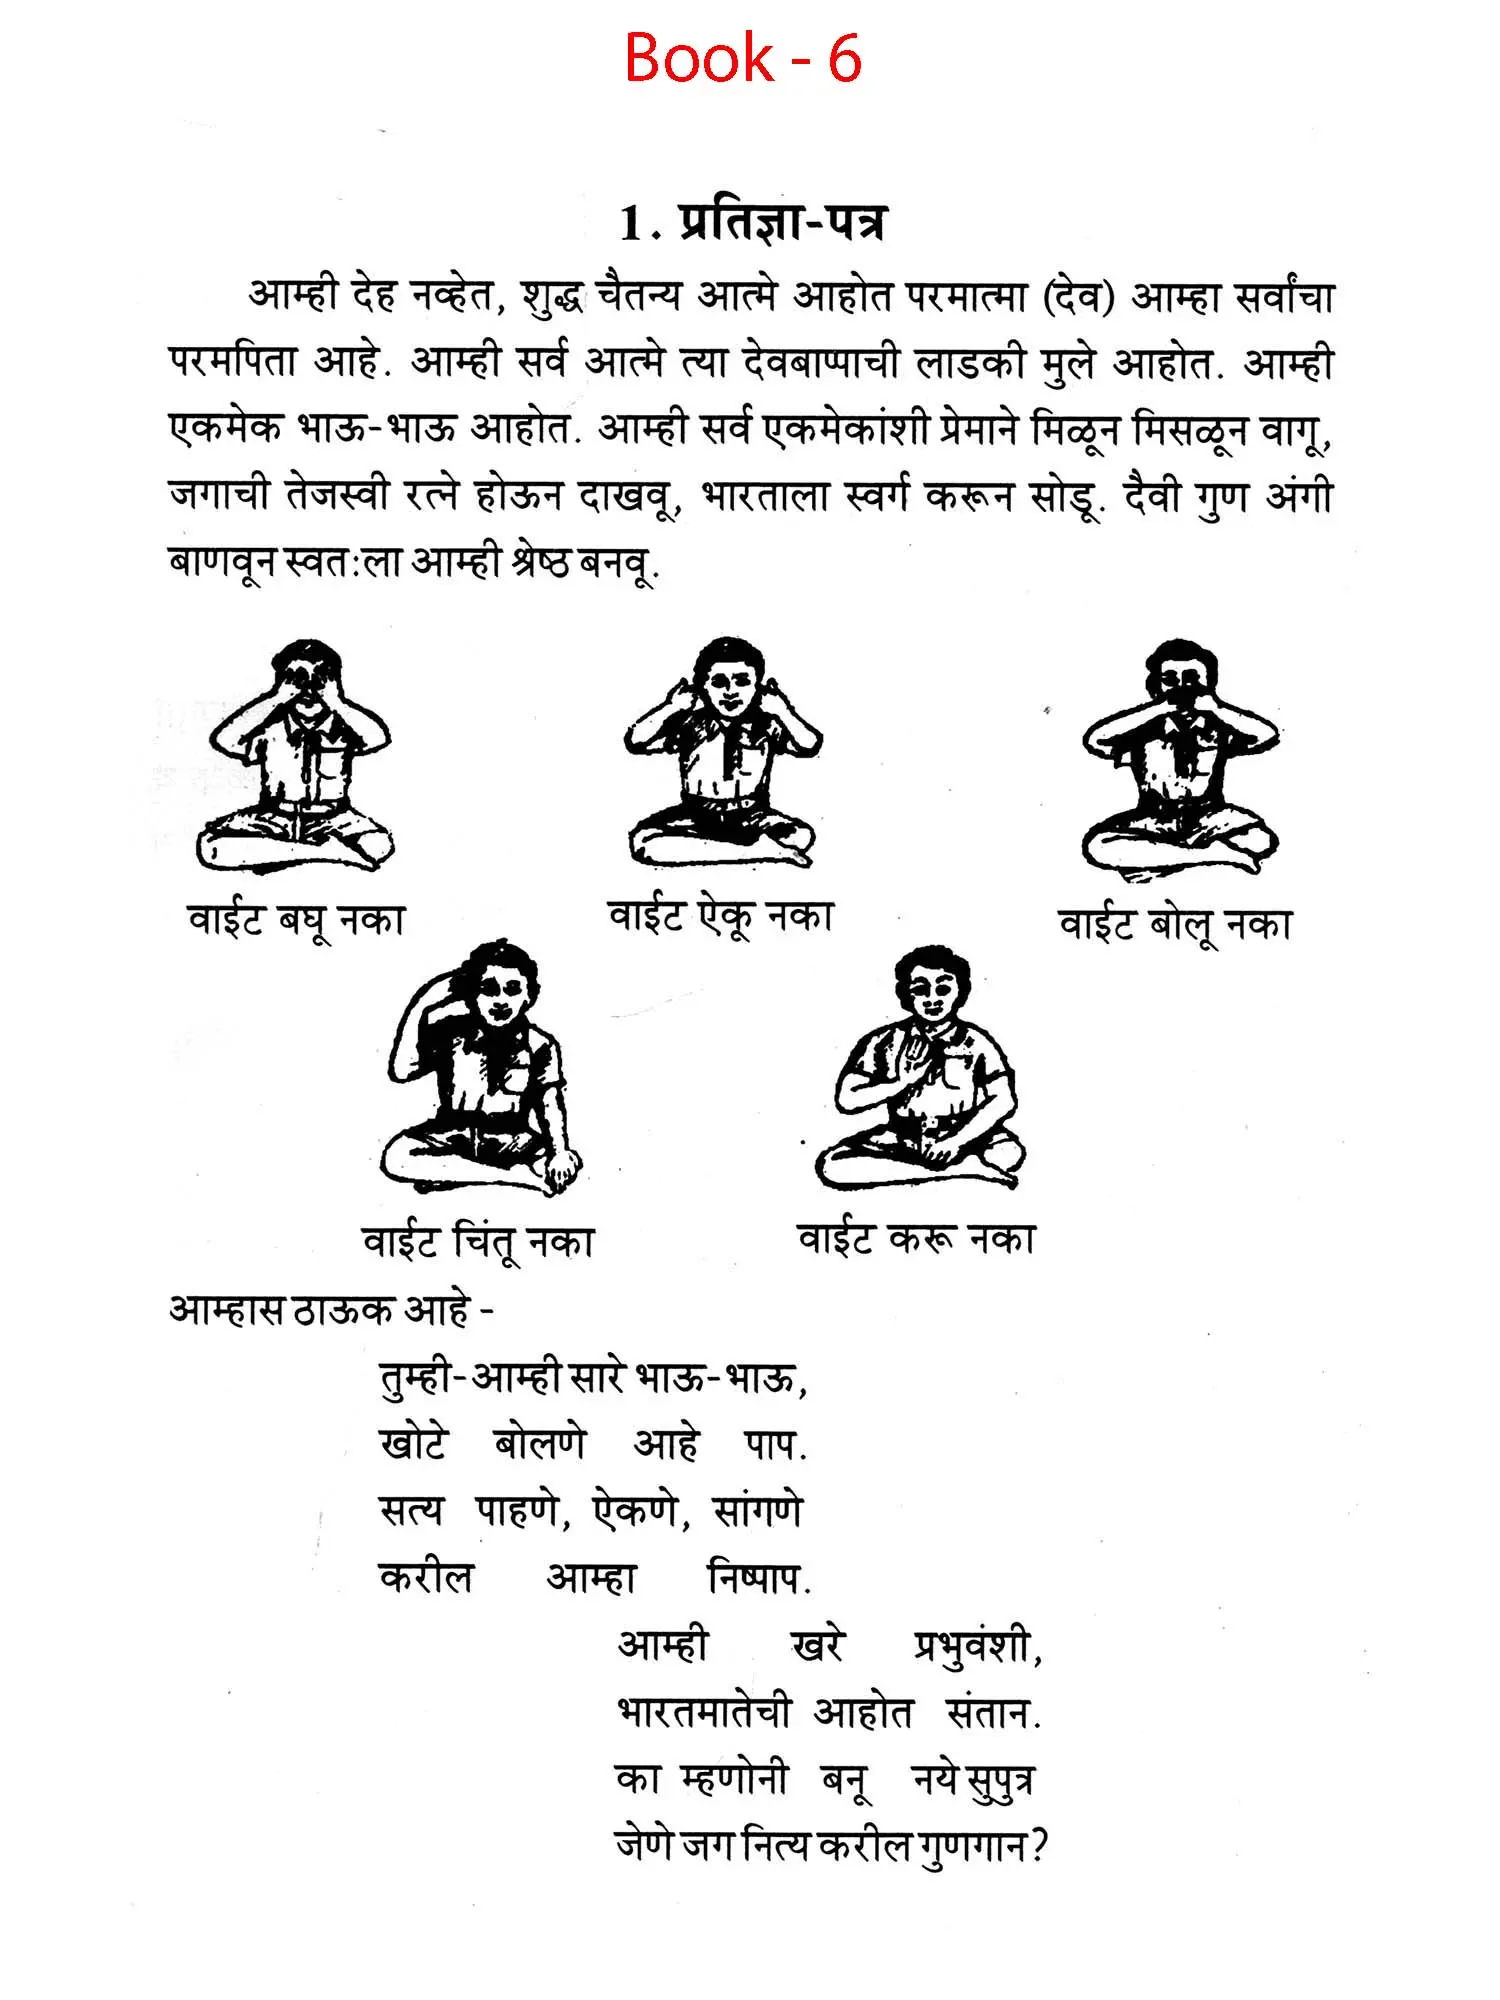 Book - 6
1. प्रतिज्ञा-पत्र
आम्ही देह नव्हेत, शुद्ध चैतन्य आत्मे आहोत परमात्मा (देव) आम्हा सर्वांचा
परमपिता आहे. आम्ही सर्व आत्मे त्या देवबाप्पाची लाडकी मुले आहोत. आम्ही
एकमेक भाऊ-भाऊ आहोत. आम्ही सर्व एकमेकांशी प्रेमाने मिळून मिसळून वागू,
जगाची तेजस्वी रत्ने होऊन दाखवू, भारताला स्वर्ग करून सोडू. दैवी गुण अंगी
बाणवून स्वत:ला आम्ही श्रेष्ठ बनवू.
वाईट बघू नका
वाईट ऐकू नका
वाईट बोलू नका
वाईट चिंतू नका
वाईट करू नका
आम्हास ठाऊक आहे -
तुम्ही-आम्ही सारे भाऊ-भाऊ,
खोटे बोलणे आहे पाप.
सत्य पाहणे, ऐकणे, सांगणे
करील आम्हा निष्पाप.
आम्ही खरे प्रभुवंशी,
भारतमातेची आहोत संतान.
का म्हणोनी बनू नये सुपुत्र
जेणे जग नित्य करील गुणगान?